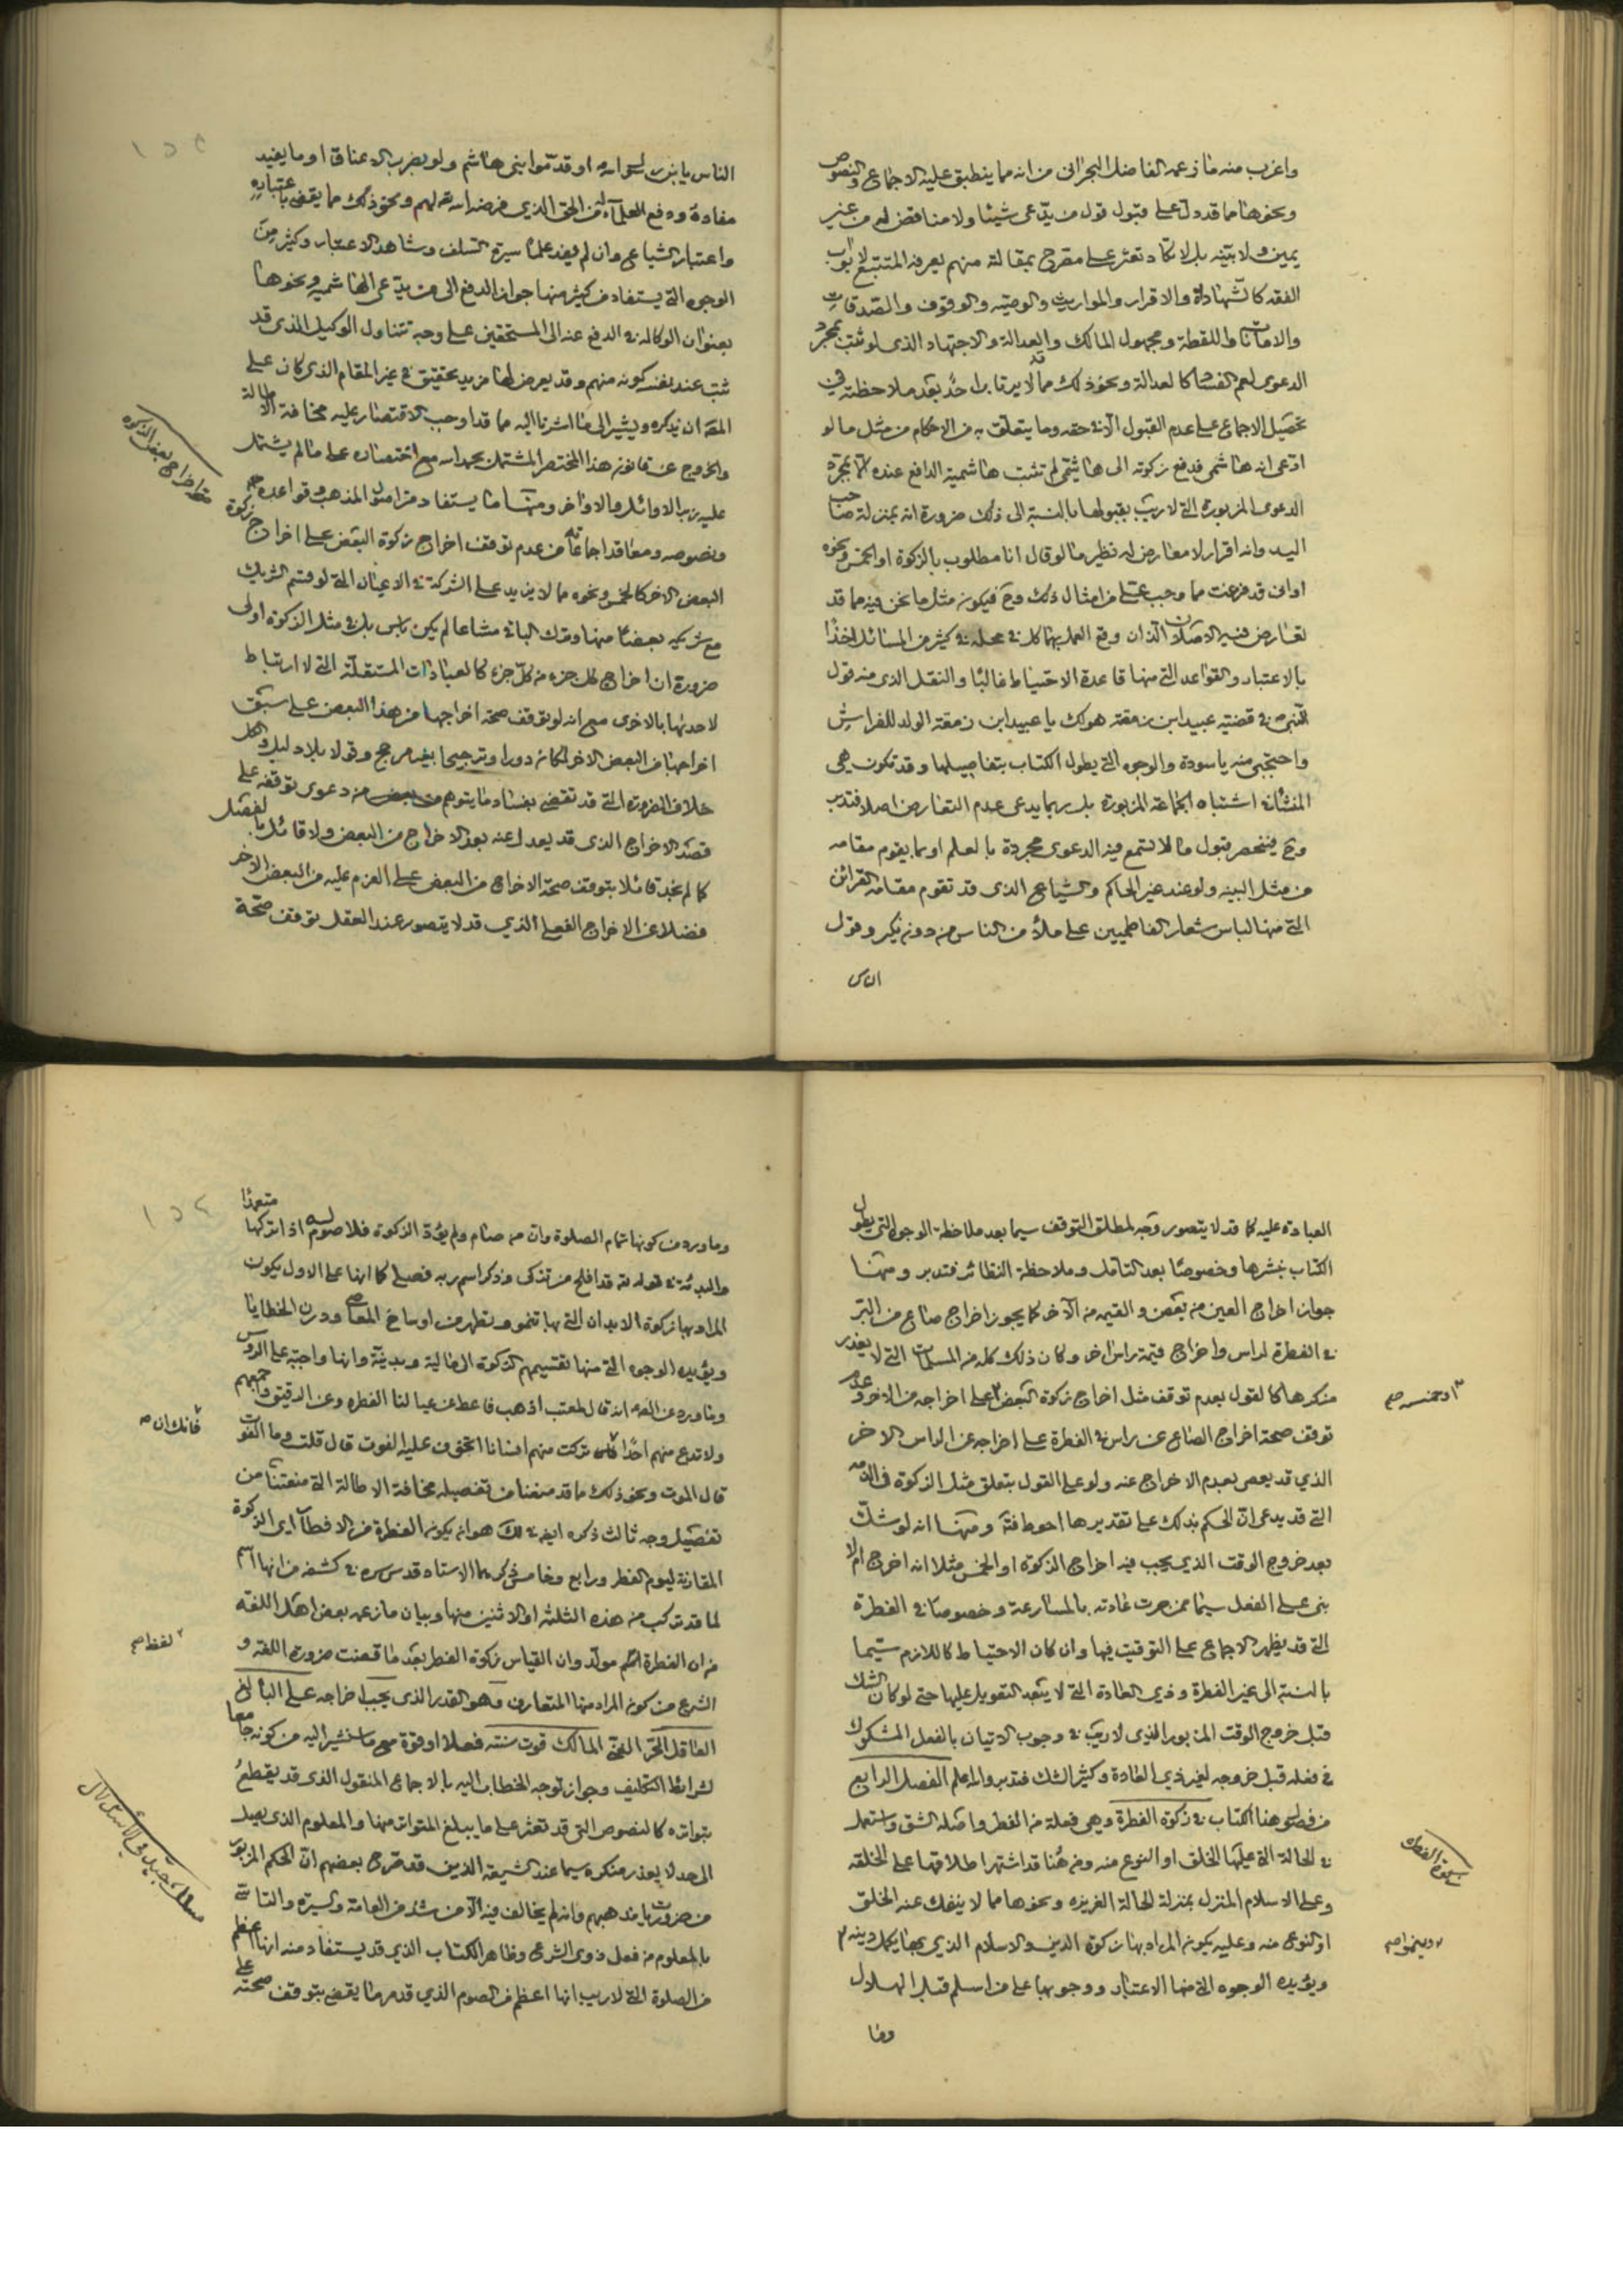 واغرب منه ما زعمه الفاضل البحراني من انه مما ينطبق عليه الاجماع والنصوص
ونحوهما مما قد دل على قبول قول من يدعي شيئا ولا مناقض له من غير
يمين ولا بينه بل لا تكاد تعثر على مصرح بمقالته منهم يعرفه المتتبع لابواب
الفقه كالشهادات والاقرار والمواريث والوصيه والوقوف والصدقات
والامانات واللقطة ومجهول المالك والعدالة والاجتهاد الذي لو ثبت بمجرد
الدعوى لعم الفساد كالعدالة ونحو ذلك مما لا يرتاب احد بعد ملاحظته في
تحصيل الاجماع على عدم القبول الا في حقه وما يتعلق به من الاحكام من مثل ما لو
ادعى انه هاشمي فدفع زكوته الى هاشمي لم تثبت هاشمية الدافع عنده الا بمجرد
الدعوى المزبورة التي لا ريب بقبولها بالنسبة الى ذلك ضرورة انه بمنزلة صاحب
اليد وانه اقرار لا معارض له نظير ما لو قال انا مطلوب بالزكوة او الخمس ونحوه
او اني قد فرغت مما وجب علي من امثال ذلك وح فيكون مثل ما نحن فيه مما قد
تعارض فيه الاصلان اللذان وقع العمل بهما كل في محله في كثير من المسائل اخذا
بالاعتبار والقواعد التي منها قاعدة الاحتياط غالبا والنقل الذي منه قول
النبي ص في قضية عبيد ابن زمعة هو لك يا عبيد ابن زمعة الولد للفراش
واحتجبي منه يا سودة والوجوه التي يطول الكتاب بتفاصيلها وقد تكون هي
المنشأ في اشتباه الجماعة المزبورة بل ربما يدعى عدم التعارض اصلا فتدبر
وح فينحصر قبول ما لا تسمع فيه الدعوى مجردة بالعلم او بما يقوم مقامه
من مثل البينه ولو عند غير الحاكم والشياع الذي قد تقوم مقامه القرائن
التي منها لباس شعار الفاطميين على ملأ من الناس من دون نكير وقول
الناس
الناس يابن رسول الله او قدموا بني هاشم ولو بضرب الاعناق او ما يفيد
مفاده ودفع العلماء له من الحق الذي فرضه الله تع لهم ونحو ذلك مما يقضي باعتباره
واعتبار الشياع وان لم يفد علما سيرة السلف وشاهد الاعتبار وكثير من
الوجوه التي يستفاد من كثير منها جواز الدفع الى من يدعي الهاشميه ونحوها
بعنوان الوكاله في الدفع عنه الى المستحقين على وجه تتناول الوكيل الذي قد
ثبت عند نفسه كونه منهم وقد يعرض لها مزيد تحقيق في غير المقام الذي كان على
المص ان يذكره ويشير الى ما اشرنا اليه مما قد اوجب الاقتصار عليه مخافة الاطالة
والخروج عن قانون هذا المختصر المشتمل بحمد الله مع اختصاره على ما لم يشتمل
عليه زبر الاوائل والاواخر ومنها ما يستفاد من اصول المذهب وقواعده
ونصوصه ومعاقد اجماعاته من عدم توقف اخراج زكوة البعض على اخراج زكوة
البعض الاخر كالخمس ونحوه مما لا يزيد على الشركة في الاعيان التي لو قسم الشريك
مع شريكه بعضا منها وترك الباقي مشاعا لم يكن باس بل في مثل الزكوة اولى
ضرورة ان اخراج كل جزء من كل جزء كالعبادات المستقلة التي لا ارتباط
لاحديها بالاخرى مع انه لو توقف صحة اخراجها من هذا البعض على سبق
اخراجها من البعض الاخر لكان دورا وترجيحا بغير مرجح وقولا بلا دليل والكل
خلاف الضرورة التي قد تقضي بفساد ما يتوهم من بعض من دعوى توقفه على
قصد الاخراج الذي قد يعدل عنه بعد الاخراج من البعض ولا قائل بالفصل
كما لم نجد قائلا بتوقف صحة الاخراج من البعض على العزم عليه من البعض الاخر
فضلا عن الاخراج الفعلي الذي قد لا يتصور عند العقل توقف صحة
العبادة عليه كما قد لا يتصور وجه لمطلق التوقف سيما بعد ملاحظة الوجوه التي يطول
الكتاب بنشرها وخصوصا بعد التأمل وملاحظة النظائر فتدبر ومنها
جواز اخراج العين من بعض والقيمه من الآخر كما يجوز اخراج صاع من التبر
في الفطرة لراس واخراج قيمة براس اخر وكان ذلك كله من المسلمات التي لا يعذر
منكرها كالقول بعدم توقف مثل اخراج زكوة البعض على اخراجه من الاخر وعدم
او خمسه صح
توقف صحة اخراج الصاع عن راس في الفطرة على اخراجه عن الراس الاخر
الذي قد يعصي بعدم الاخراج عنه ولو على القول بتعلق مثل الزكوة في الذمه
التي قد يدعى ان الحكم بذلك على تقديرها احوط فتـ ومنها انه لو شك
بعد خروج الوقت الذي يجب فيه اخراج الزكوة او الخمس مثلا انه اخرج ام لا
بنى على الفعل سيما ممن جرت عادته بالمسارعة وخصوصا في الفطرة
التي قد يظهر الاجماع على التوقيت فيها وان كان الاحتياط كاللازم سيما
بالنسبة الى غير الفطرة وذي العادة التي لا يبعد التعويل عليها حتى لو كان الشك
قبل خروج الوقت المزبور الذي لا ريب في وجوب الاتيان بالفعل المشكوك
في فعله قبل خروجه لغير ذي العادة وكثير الشك فتدبر والله اعلم الفصل الرابع
من فصول هذا الكتاب في زكوة الفطرة وهي فعلة من الفطر واصله الشق واستعمل
زكوة الفطرة
في الحالة التي عليها الخلق او النوع منه ومن هنا قد اشتهر اطلاقها على الخلقه
وعلى الاسلام المنزل بمنزلة الحالة الغريزه ونحوها مما لا ينفك عنه الخلق
او النوع منه وعليه يكون المراد بها زكوة الدين والاسلام الذي بها يكمل دينه
وينمو صح
ويؤيده الوجوه التي منها الاعتبار ووجوبها على من اسلم قبل الهلال
وما
وما ورد من كونها تمام الصلوة وان من صام ولم يؤد الزكوة فلا صوم له اذا تركها متعمدا
والبدئة في قوله تع قد افلح من تزكى وذكر اسم ربه فصلى كما انها على الاول يكون
المراد بها زكوة الابدان التي بها تنمو وتطهر من اوساخ المعاصي ودرن الخطايا
ويؤيده الوجوه التي منها تقسيمهم الزكوة الى مالية وبدنية وانها واجبة على الروس
وما ورد عن الص انه قال لمعتب اذهب فاعط عن عيالنا الفطره وعن الرقيق واجمعهم
ولا تدع منهم احدا فانك ان تركت منهم انسانا تخوفت عليه الفوت قال قلت وما الفوت
فانك ان صح
قال الموت ونحو ذلك مما قد منعنا من تفصيله مخافة الاطالة التي منعتنا من
تفصيل وجه ثالث ذكره ايضا في لك هو انه يكون الفطرة من الافطار اي الزكوة
المقارنة ليوم الفطر ورابع وخامس ذكرهما الاستاد قدس سره في كشفه من انها اسم
لما قد تركب من هذه الثلثه او الاثنين منها وبيان ما زعمه بعض اهل اللغه
من ان الفطرة اسم مولد وان القياس زكوة الفطر بعد ما قضت ضرورة اللغه و
لفظ صح
الشرع من كون المراد منها المتعارف وهو القدر الذي يجب اخراجه على البالغ
العاقل الحر الغني المالك قوت سنته فعلا او قوة مع ما سنشير اليه من كونه جامعا
لشرائط التكليف وجواز توجه الخطاب اليه بالاجماع المنقول الذي قد يقطع
بتواتره كالنصوص التي قد تعثر على ما يبلغ المتواتر منها والمعلوم الذي يصل
الى حد لا يعذر منكره سيما عند الشيعة الذين قد صرح بعضهم ان الحكم المزبور
من ضروريات مذهبهم وانه لم يخالف فيه الا من شذ من العامة والسيرة والتاسي
بالمعلوم من فعل ذوي الشرع وظاهر الكتاب الذي قد يستفاد منه انها اعظم
من الصلوة التي لا ريب انها اعظم من الصوم الذي قد مر ما يقضي بتوقف صحته على